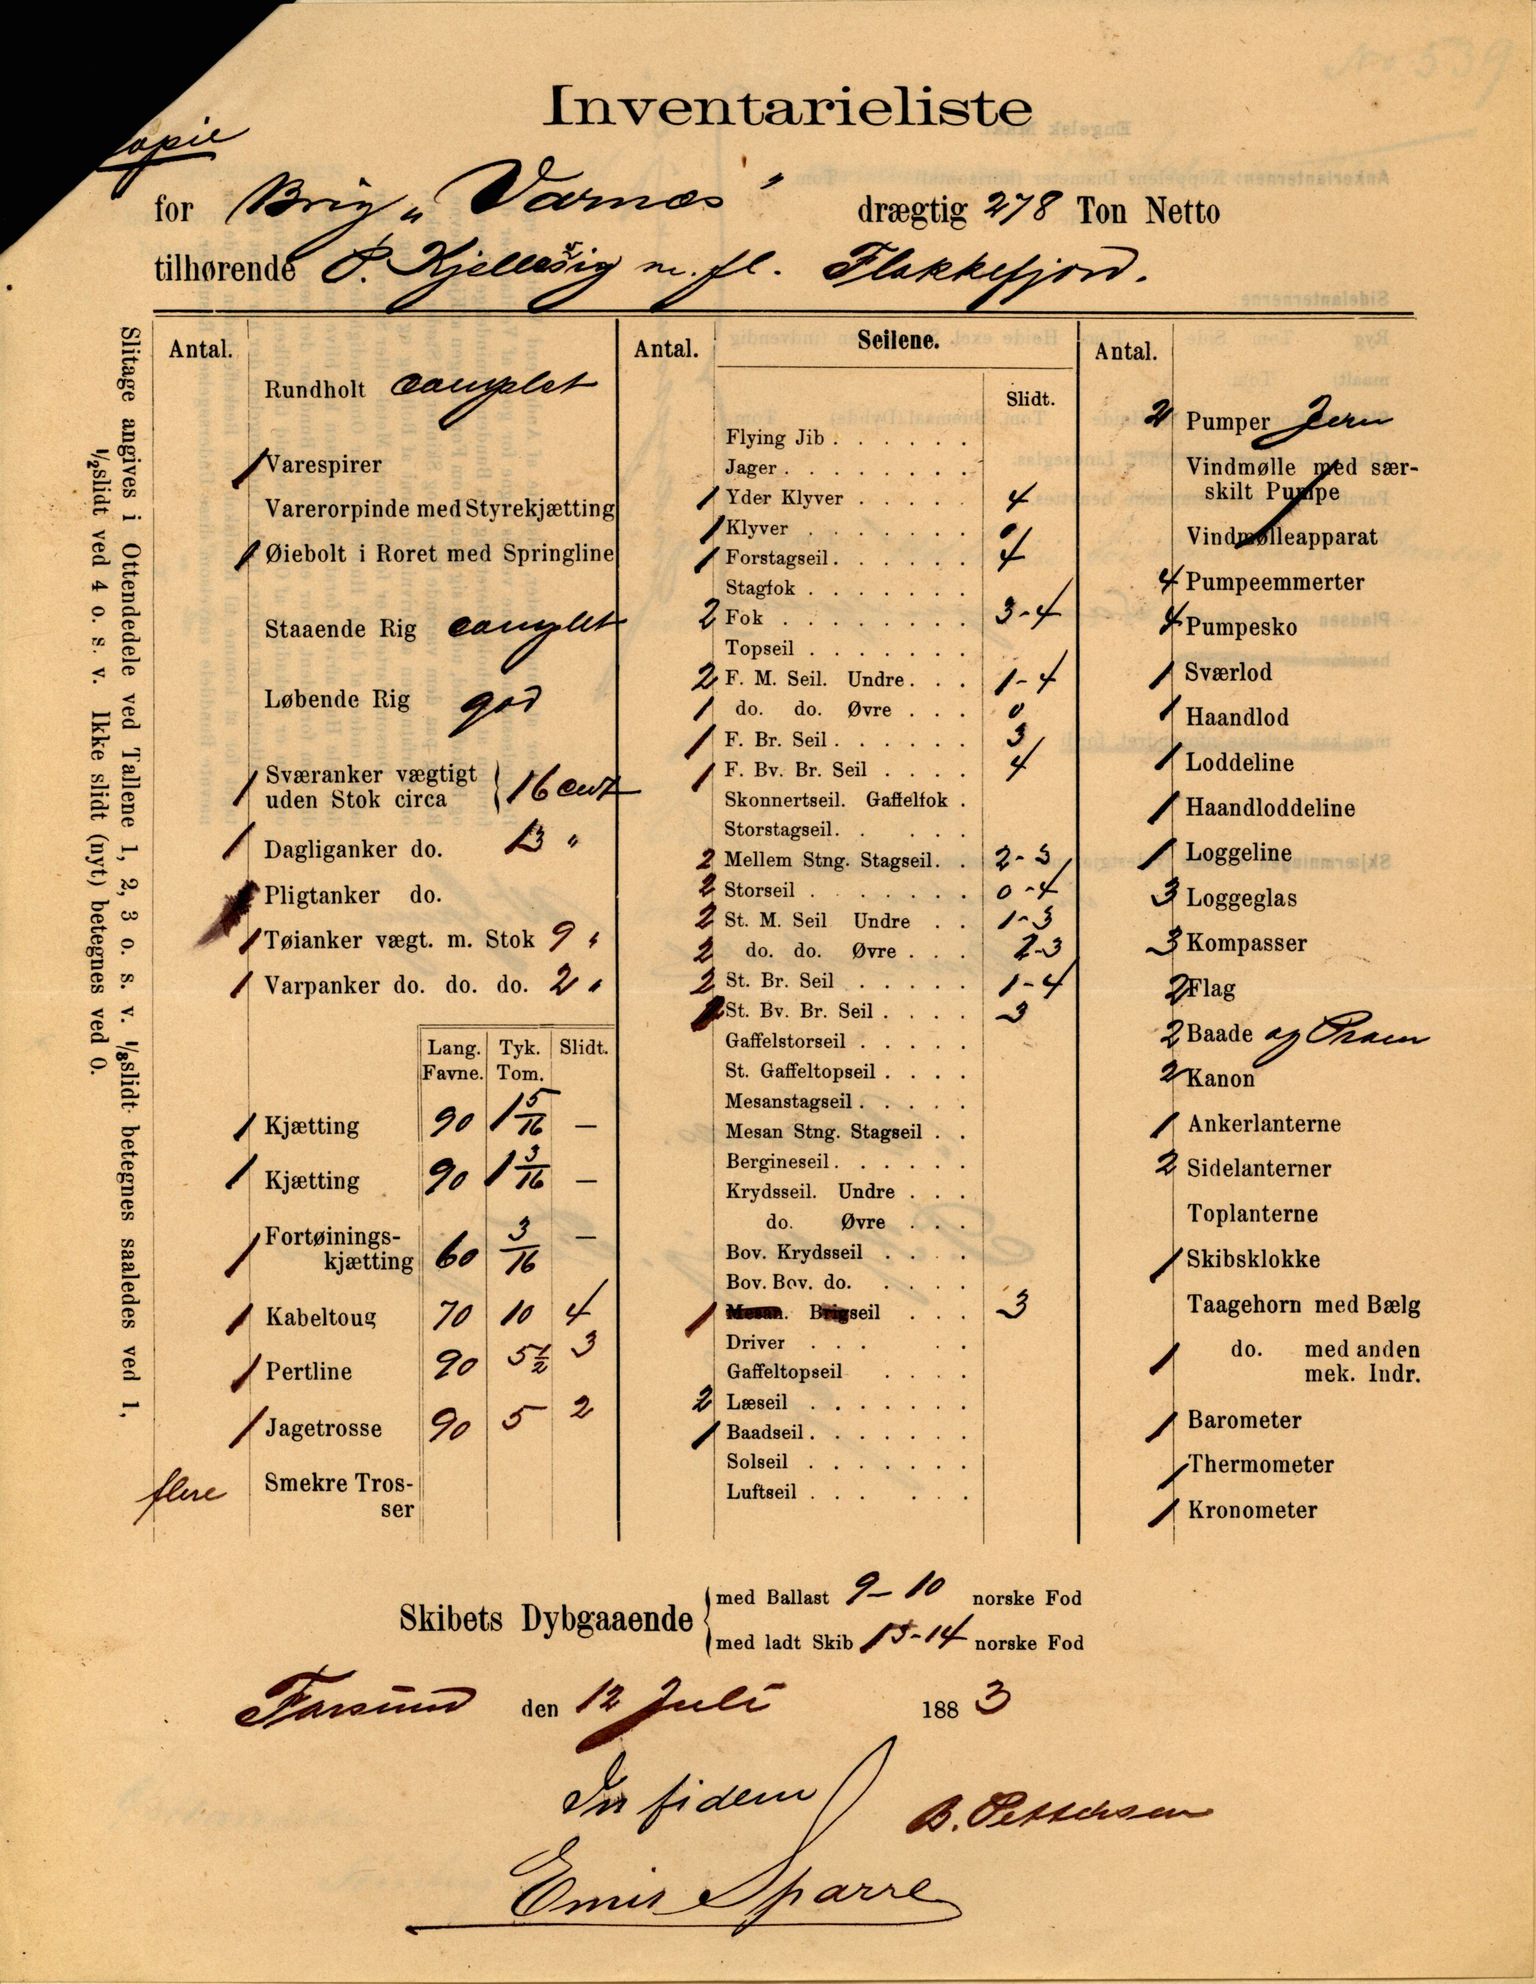 No 539
Inventarieliste
Copie
for Brig „Varnæs" drægtig 278 Ton Netto
tilhørende P. m. fl. Flekkefjord.
Slitage angives i Ottendedele ved Tallene 1, 2, 3 o. s. v. 1/8 slidt betegnes saaledes ved 1,
1/2 slidt ved 4 o. s. v. Ikke slidt (nyt) betegnes ved 0.
Antal.
Rundholt complet
1 Varespirer
Varerorpinde med Styrekjætting
1 Øiebolt i Roret med Springline
Staaende Rig complet
Løbende Rig god
1 Sværanker vægtigt
uden Stok circa 16 cwt
1 Dagliganker do. 13 "
Pligtanker do.
1 Tøianker vægt. m. Stok 9 "
1 Varpanker do. do. do. 2 "
Lang. Tyk. Slidt.
Favne. Tom.
1 Kjætting 90 1 5/16 —
1 Kjætting 90 1 3/16 —
1 Fortøinings-
kjætting 60 3/16 —
1 Kabeltoug 70 10 4
1 Pertline 90 5 1/2 3
1 Jagetrosse 90 5 2
flere Smekre Tros-
ser
Antal. Seilene.
Slidt.
Flying Jib . . . . . .
Jager . . . . . . . .
1 Yder Klyver . . . . . 4
1 Klyver . . . . . . . 0
1 Forstagseil . . . . . . 4
Stagfok . . . . . . .
2 Fok . . . . . . . . 3-4
Topseil . . . . . . .
2 F. M. Seil. Undre . . . 1-4
1 do. do. Øvre . . . 0
1 F. Br. Seil . . . . . . 3
1 F. Bv. Br. Seil . . . . 4
Skonnertseil. Gaffelfok .
Storstagseil . . . . .
2 Mellem Stng. Stagseil . . 2-3
2 Storseil . . . . . . . 0-4
2 St. M. Seil Undre . . 1-3
2 do. do. Øvre . . . 2-3
2 St. Br. Seil . . . . . 1-4
St. Bv. Br. Seil . . . . 3
Gaffelstorseil . . . . .
St. Gaffeltopseil . . . .
Mesanstagseil . . . . .
Mesan Stng. Stagseil . .
Bergineseil . . . . . .
Krydsseil. Undre . . .
do. Øvre . . .
Bov. Krydsseil . . . .
Bov. Bov. do. . . . .
1 Mesan. Brigseil . . . 3
Driver . . . . .
Gaffeltopseil . . . .
2 Læseil . . . . . . .
1 Baadseil . . . . . . .
Solseil . . . . . . .
Luftseil . . . . . .
Antal.
2 Pumper Jern
Vindmølle med sær-
skilt Pumpe
Vindmølleapparat
4 Pumpeemmerter
4 Pumpesko
1 Sværlod
1 Haandlod
1 Loddeline
1 Haandloddeline
1 Loggeline
3 Loggeglas
3 Kompasser
2 Flag
2 Baade og Pram
2 Kanon
1 Ankerlanterne
2 Sidelanterner
Toplanterne
1 Skibsklokke
Taagehorn med Bælg
1 do. med anden
mek. Indr.
1 Barometer
1 Thermometer
1 Kronometer
Skibets Dybgaaende
med Ballast 9-10 norske Fod
med ladt Skib 13-14 norske Fod
Farsund den 12 Juli 1883
In fidem
B. Pettersen
Emil Sparre